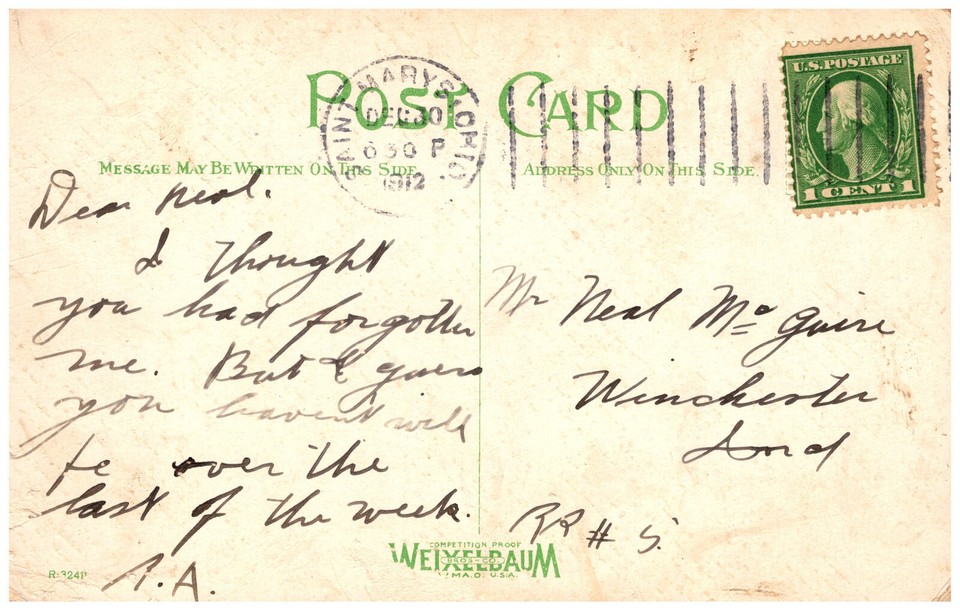 POST CARD
SAINT MARYS, OHIO
DEC 30
630 P
1912
U.S. POSTAGE
1 CENT 1
MESSAGE MAY BE WRITTEN ON THIS SIDE.
ADDRESS ONLY ON THIS SIDE.
Dear Neal.
I thought
you had forgotten
me. But I guess
you havent will
be over the
last of the week.
A.A.
Mr Neal McGuire
Winchester
Ind
RR # 5.
COMPETITION PROOF
WEIXELBAUM
BROS-CO.
LIMA, O. U.S.A.